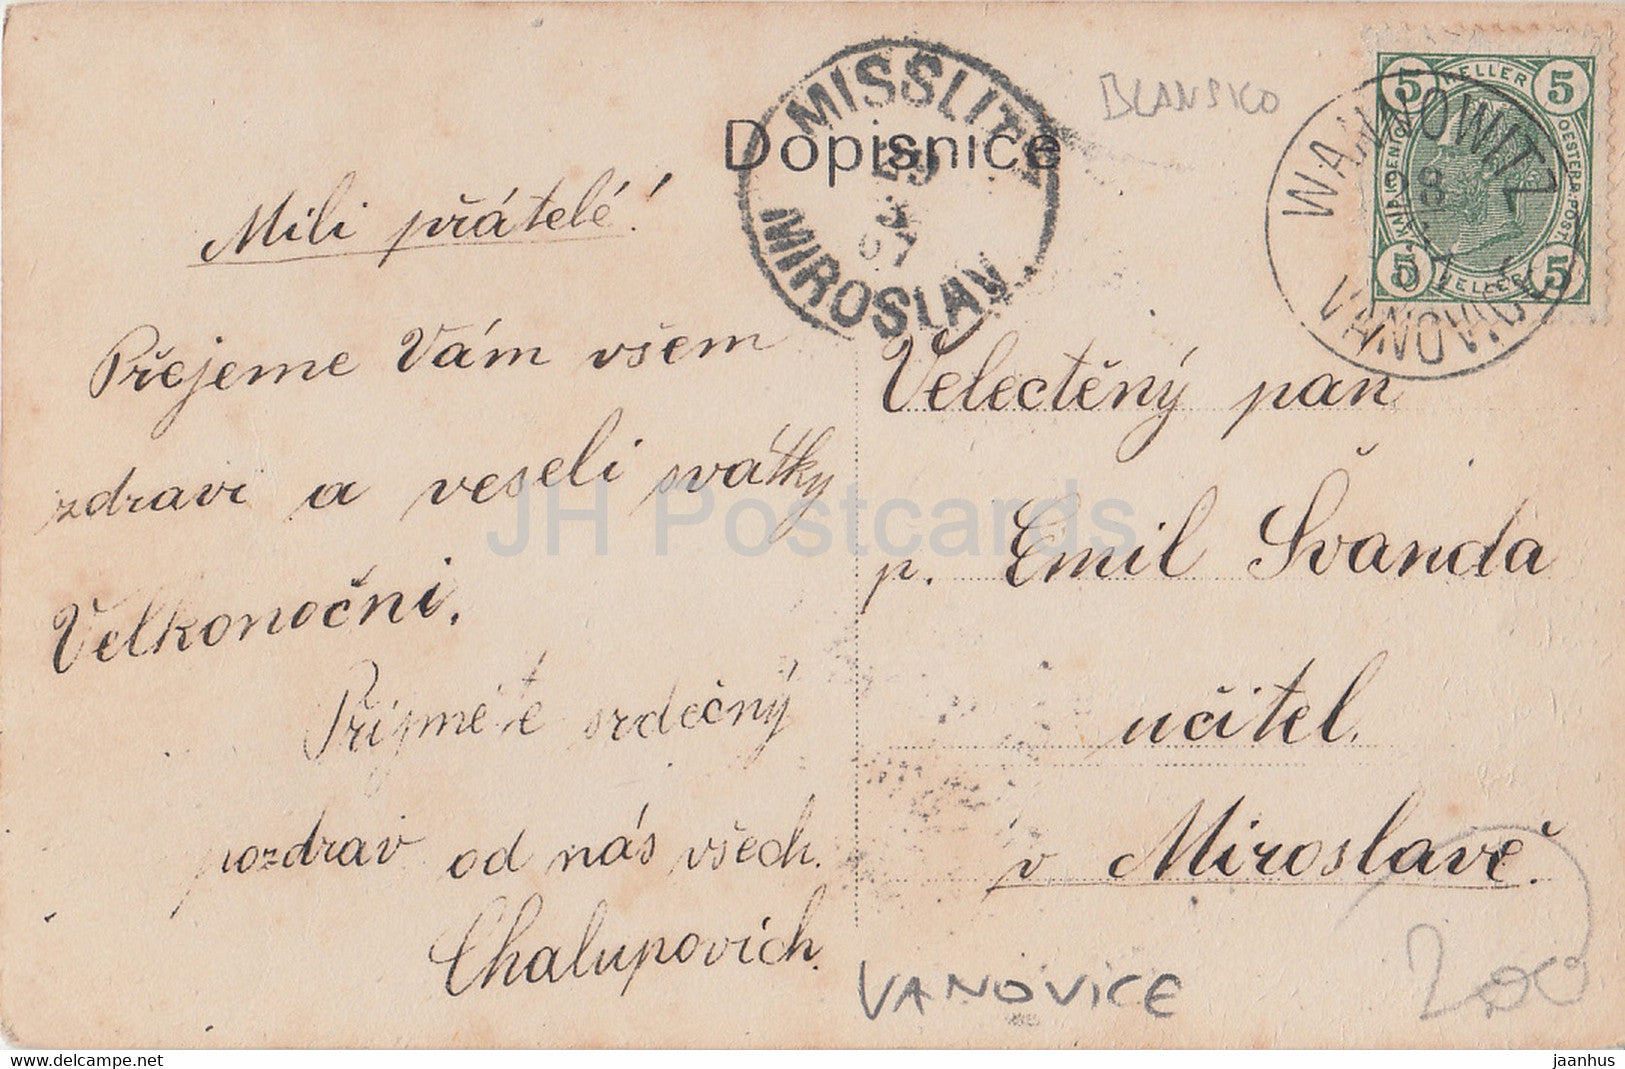 Dopisnice
MISSLITZ
29
3
07
MIROSLAV
BLANSKO
WANNOWITZ
28
VANOVICE
5 HELLER 5
KAIS. KOENIG. OESTERR. POST.
5 HELLER 5
Mili přátelé!
Přejeme Vám všem
zdravé a veselé svátky
Velkonoční.
Přijměte srdečný
pozdrav od nás všech.
Chalupových.
Velectěný pan
p. Emil Švanda
učitel.
v Miroslavě.
VANOVICE
200
JH Postcards
www.delcampe.net
jaanhus